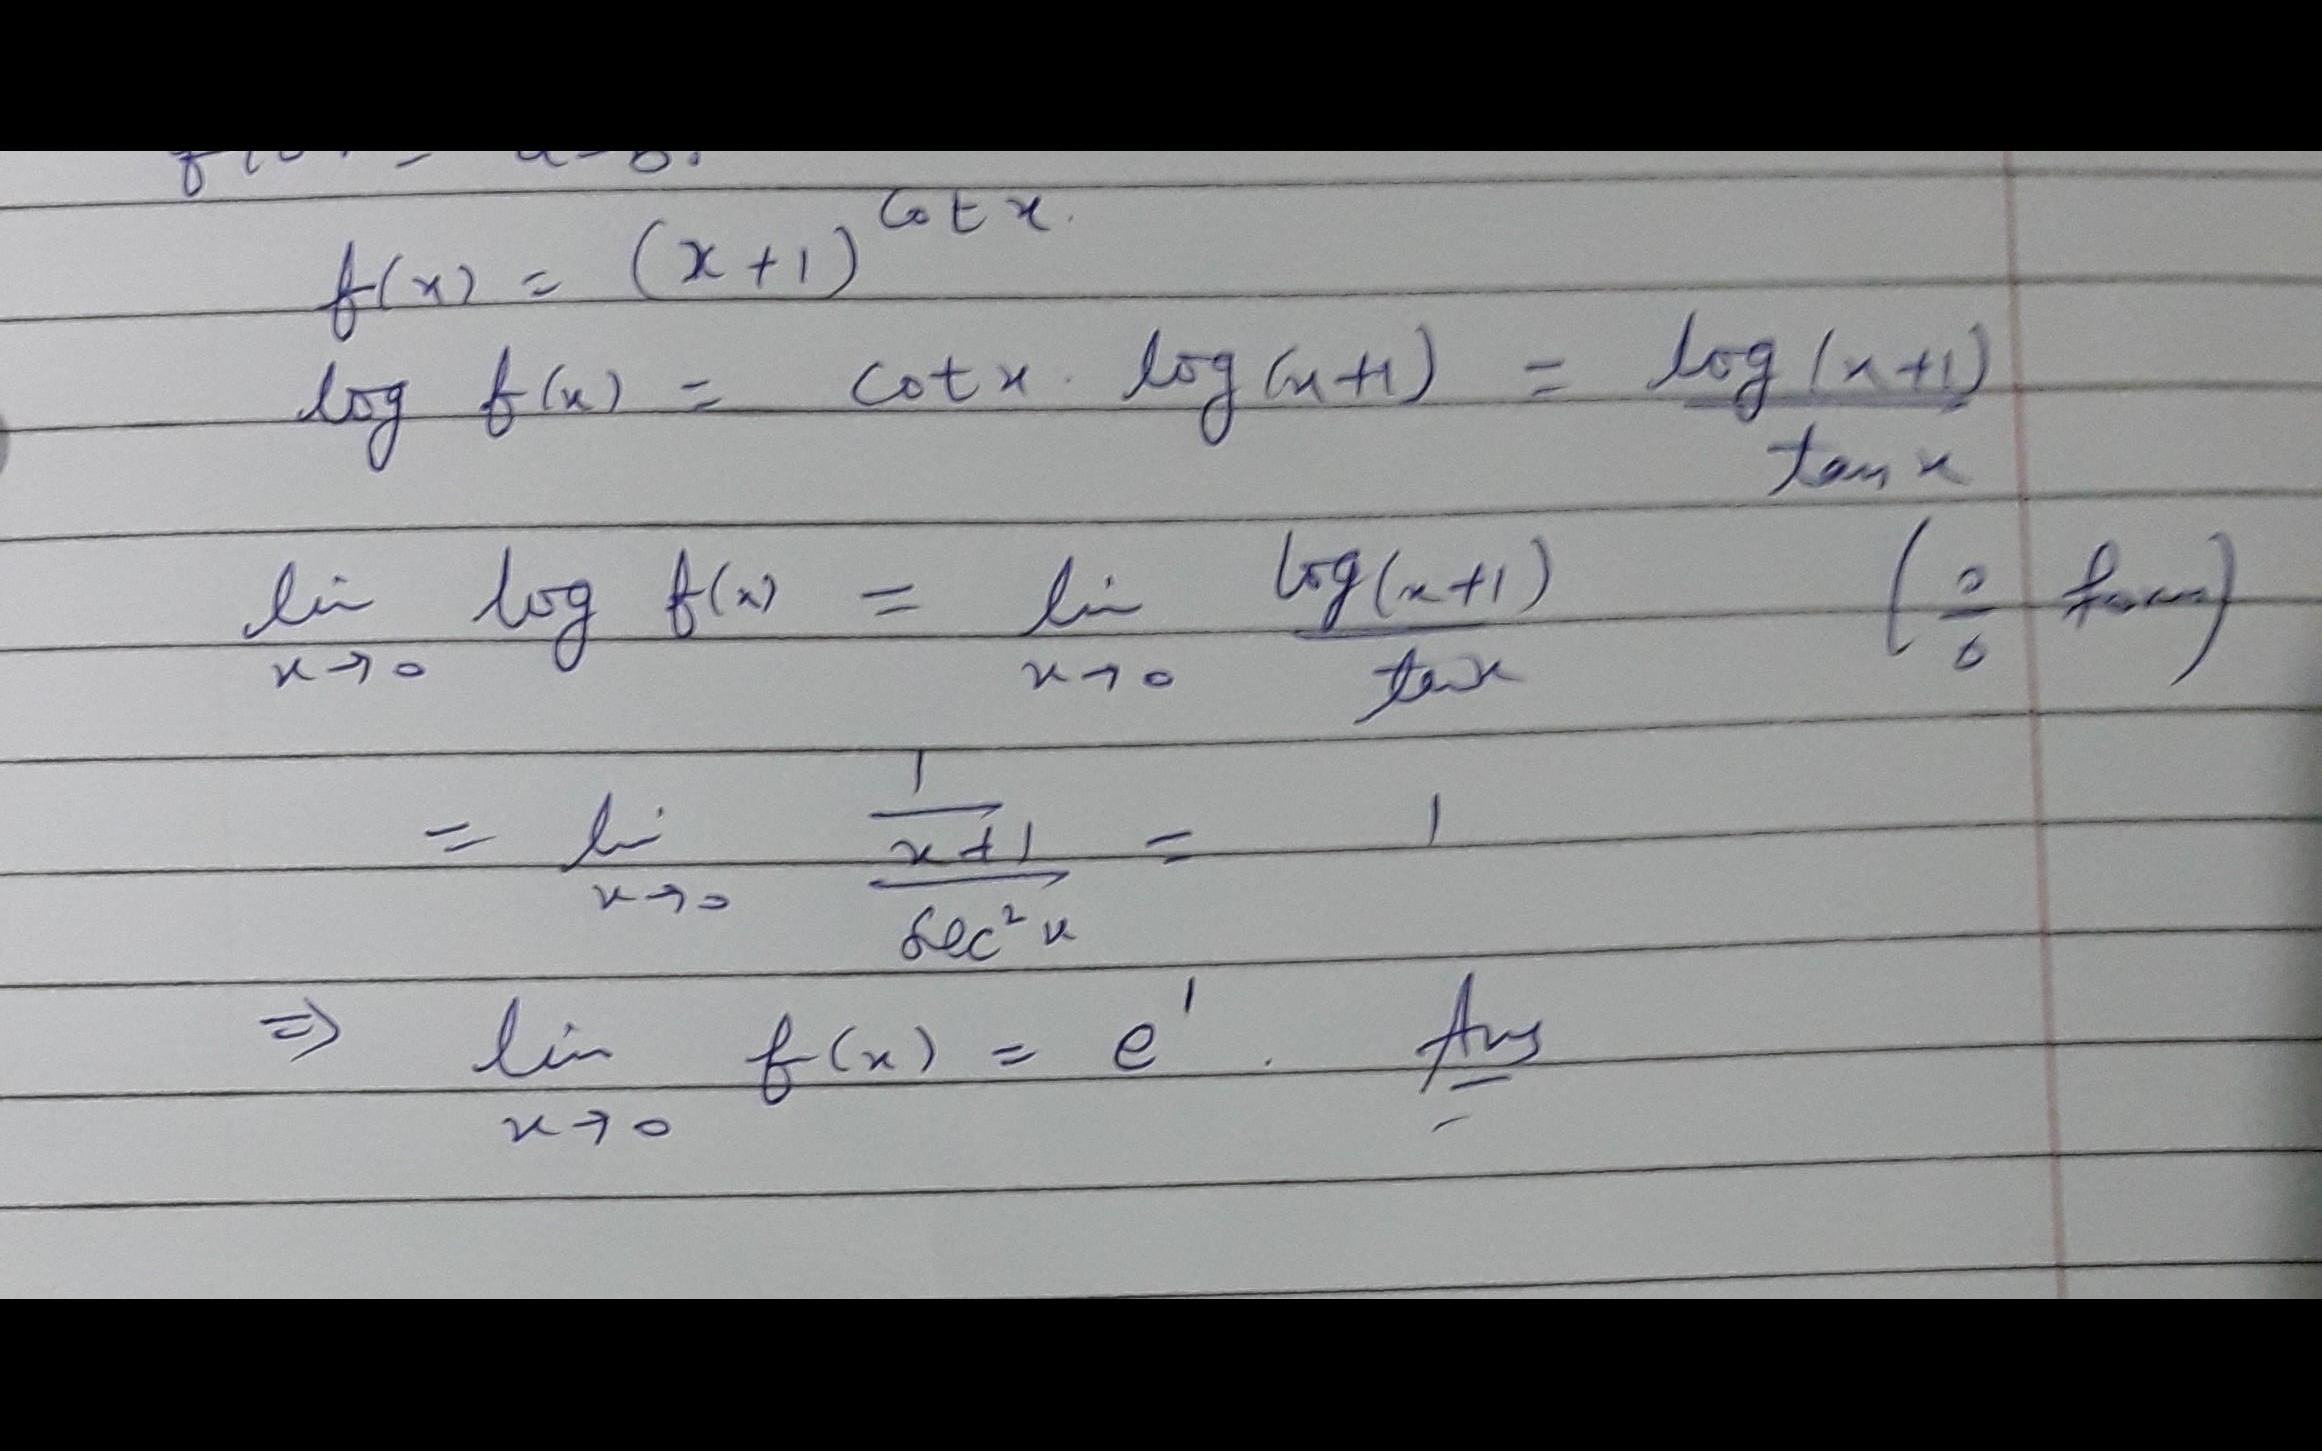 f(x) = (x+1)^cot x.
log f(x) = cot x . log (x+1) = log (x+1) / tan x
lim x→0 log f(x) = lim x→0 log(x+1) / tan x ( 0/0 form)
= lim x→0 (1 / x+1) / sec² x = 1
⇒ lim x→0 f(x) = e¹ . Ans